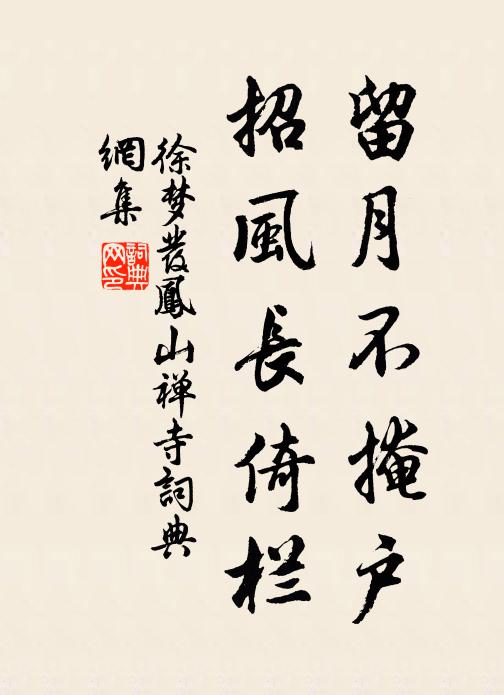 留月不掩户
招風長倚栏
徐梦发鳳山禅寺詞典
網集
詞典网印